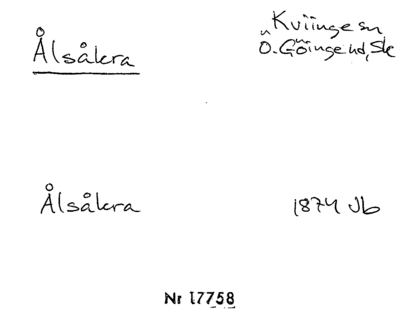 Ålsåkra
Kviinge sn
Ö. Göinge hd, Sk
Ålsåkra 1874 Jb
Nr 17758